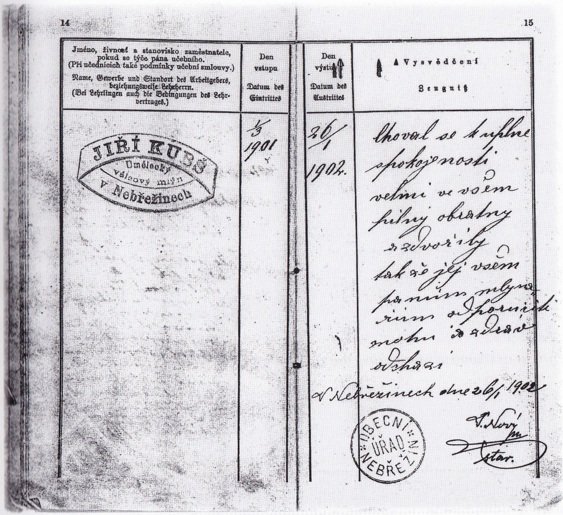 14
Jméno, živnosť a stanovisko zaměstnatele,
pokud se týče pána učebního.
(Při učednících také podmínky učební smlouvy.)
Name, Gewerbe und Standort des Arbeitgebers,
beziehungsweise Lehrherrn.
(Bei Lehrlingen auch die Bedingungen des Lehr-
vertrages.)
Den
vstupu
Datum des
Eintrittes
JIŘÍ KUBŠ
Umělecký
válcový mlýn
v Nebřežinech
1/3
1901
15
Den
výstupu
Datum des
Austrittes
Vysvědčení
Zeugniß
26/1
1902.
choval se k úplné
spokojenosti
velmi ve všem
pilný obratný
a zdvořilý
takže jej všem
pánům mlyná-
řům odporučiti
mohu a zdráv
odchází
V Nebřežinech dne 26/1 1902
OBECNÍ
ÚŘAD
NEBŘEŽIN
Nový
star.